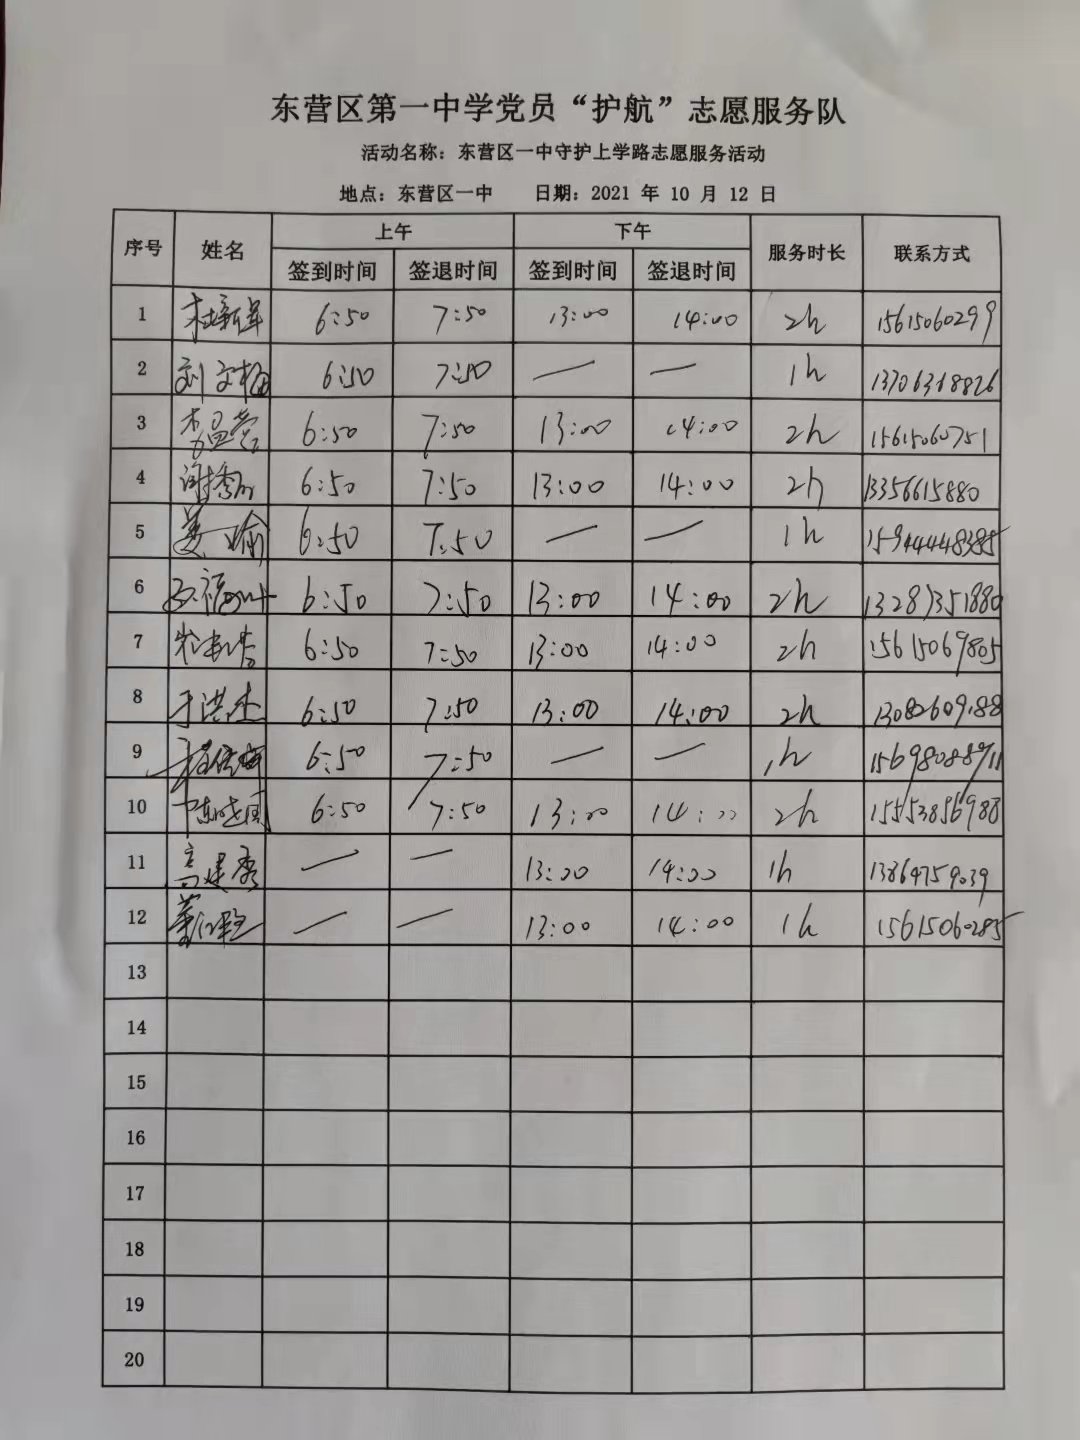 东营区第一中学党员“护航”志愿服务队
活动名称：东营区一中守护上学路志愿服务活动
地点：东营区一中 日期：2021 年 10 月 12 日
序号 姓名 上午 下午 服务时长 联系方式
签到时间 签退时间 签到时间 签退时间
1 6:50 7:50 13:00 14:00 2h 15615060299
2 刘文梅 6:50 7:50 — — 1h 13706368826
3 6:50 7:50 13:00 14:00 2h 15615060751
4 谢秀 6:50 7:50 13:00 14:00 2h 13356615880
5 姜瑜 6:50 7:50 — — 1h
6 6:50 7:50 13:00 14:00 2h 13287351880
7 6:50 7:50 13:00 14:00 2h 15615069805
8 于洪杰 6:50 7:50 13:00 14:00 2h 13082609188
9 6:50 7:50 — — 1h
10 陈晓国 6:50 7:50 13:00 14:00 2h 15553856988
11 高建秀 — — 13:00 14:00 1h 13864759039
12 董 — — 13:00 14:00 1h 15615060285
13
14
15
16
17
18
19
20